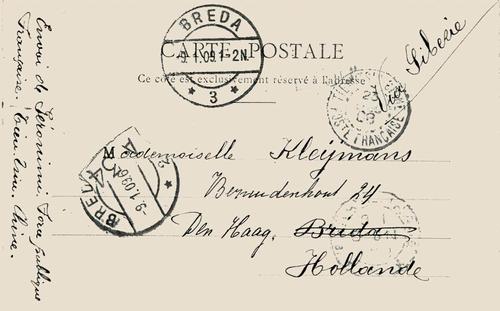 BREDA
-9.1.09.1-2N.
* 3 *
CARTE POSTALE
Ce côté est exclusivement réservé à l'adresse
Via Sibérie
POSTE FRANÇAISE
Mademoiselle Kleijmans
Bezuidenhout 24
Den Haag. Breda
Hollande
BREDA
-9.1.09.
Envoi de
française. Tien Tsin. Chine.